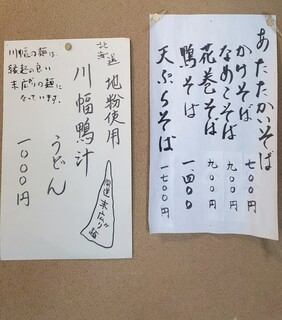 あたたかいそば
かけそば 七〇〇円
なめこそば 九〇〇円
花巻そば 九〇〇円
鴨そば 一、四〇〇
天ぷらそば 一七〇〇円
北海道
地粉使用
川幅鴨汁
うどん
一〇〇〇円
開運 末広がり
川幅の麺は
縁起の良い
末広がりの麺に
なっています。